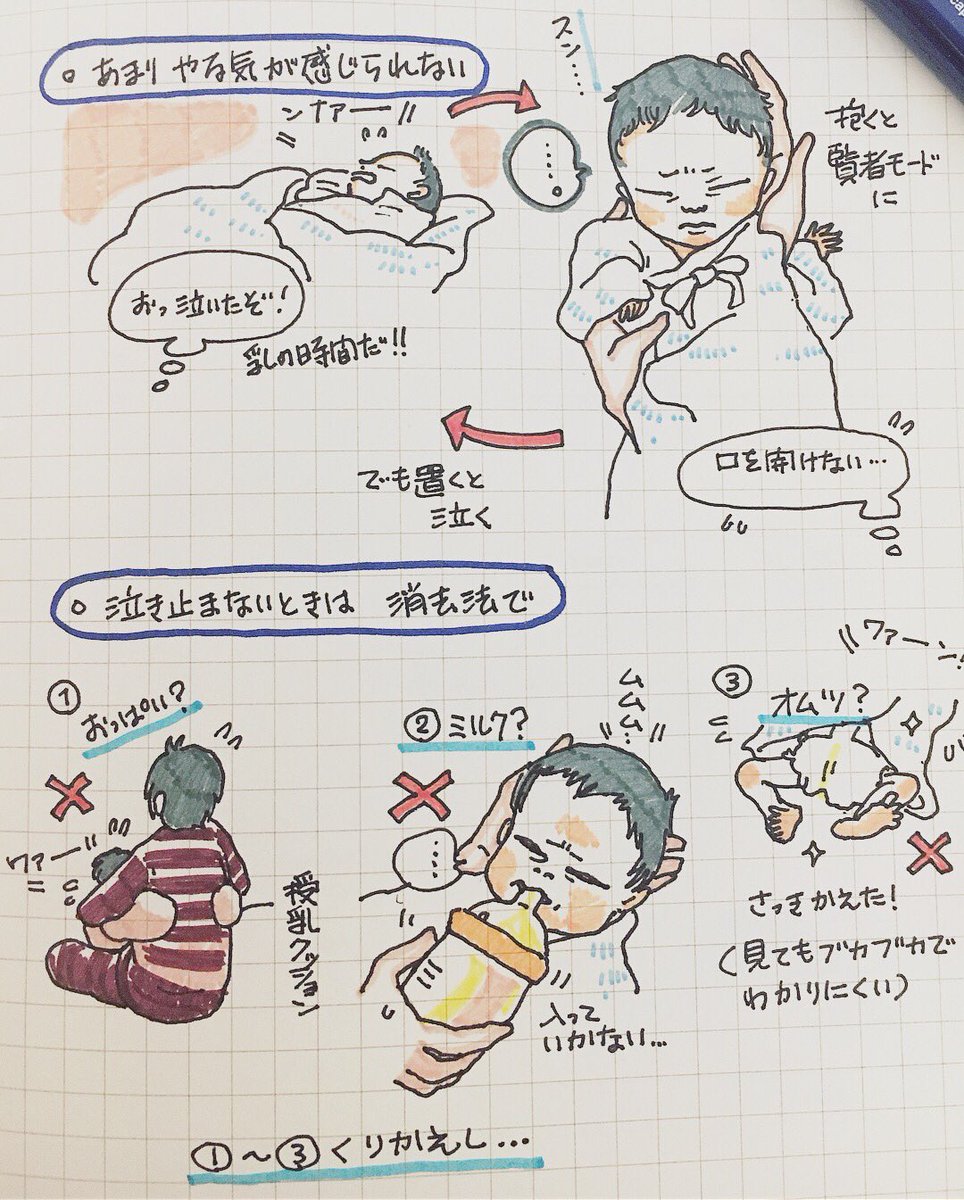 ○ あまり やる気が感じられない
ンナァー
スン….
……。
抱くと
賢者モード
に
おっ泣いたぞ!
乳の時間だ!!
口を開けない…
でも置くと
泣く
○ 泣き止まないときは 消去法で
①
おっぱい?
ワァー
授乳クッション
②ミルク?
ムムム…
…
入って
いかない…
③
オムツ?
ワァーン!
さっきかえた!
(見てもブカブカで
わかりにくい)
①〜③くりかえし…